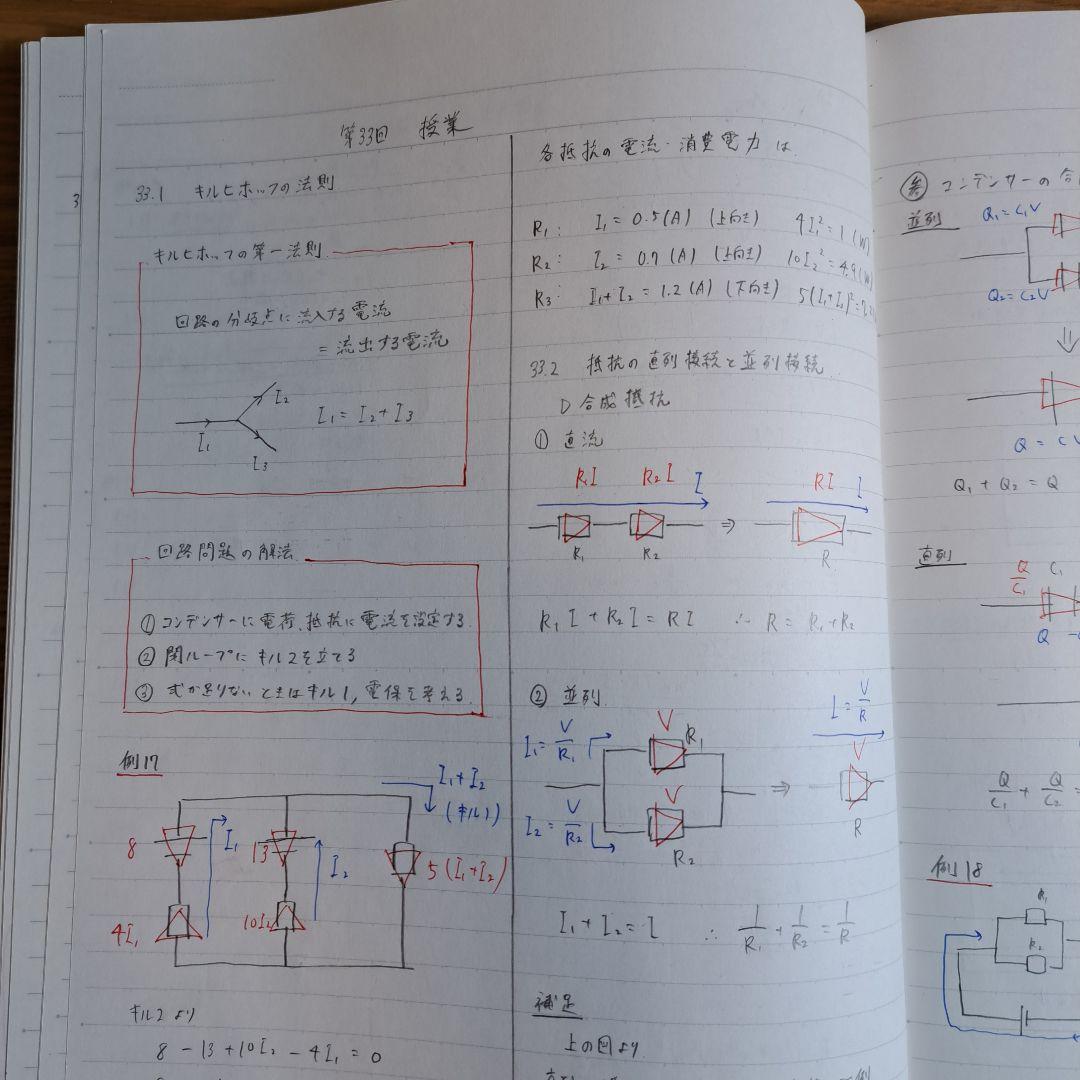 第33回 授業
33.1 キルヒホッフの法則
キルヒホッフの第一法則
回路の分岐点に流入する電流
= 流出する電流
I₁
I₂
I₃
I₁ = I₂ + I₃
回路問題の解法
① コンデンサーに電荷、抵抗に電流を設定する
② 閉ループにキル2を立てる
③ 式が足りないときはキル1, 電保を考える
例17
I₁+I₂
(キル1)
8
I₁
13
I₂
5(I₁+I₂)
4I₁
10I₂
キル2より
8 − 13 + 10I₂ − 4I₁ = 0
各抵抗の電流・消費電力は
R₁: I₁ = 0.5 (A) (上向き) 4I₁² = 1 (W)
R₂: I₂ = 0.7 (A) (上向き) 10I₂² = 4.9 (W)
R₃: I₁+I₂ = 1.2 (A) (下向き) 5(I₁+I₂)² =
33.2 抵抗の直列接続と並列接続
合成抵抗
① 直流
R₁I R₂I I
RI I
R₁ R₂ ⇒ R
R₁I + R₂I = RI ∴ R = R₁+R₂
② 並列
I₁ = V/R₁
V
R₁
I₂ = V/R₂
V
R₂
⇒
I = V/R
V
R
I₁ + I₂ = I ∴ 1/R₁ + 1/R₂ = 1/R
補足
上の図より
3
参 コンデンサーの合
並列
Q₁ = C₁V
Q₂ = C₂V
⇓
Q = CV
Q₁ + Q₂ = Q
直列
Q/C₁ C₁
Q
Q/C₁ + Q/C₂ =
例18
R₁
R₂